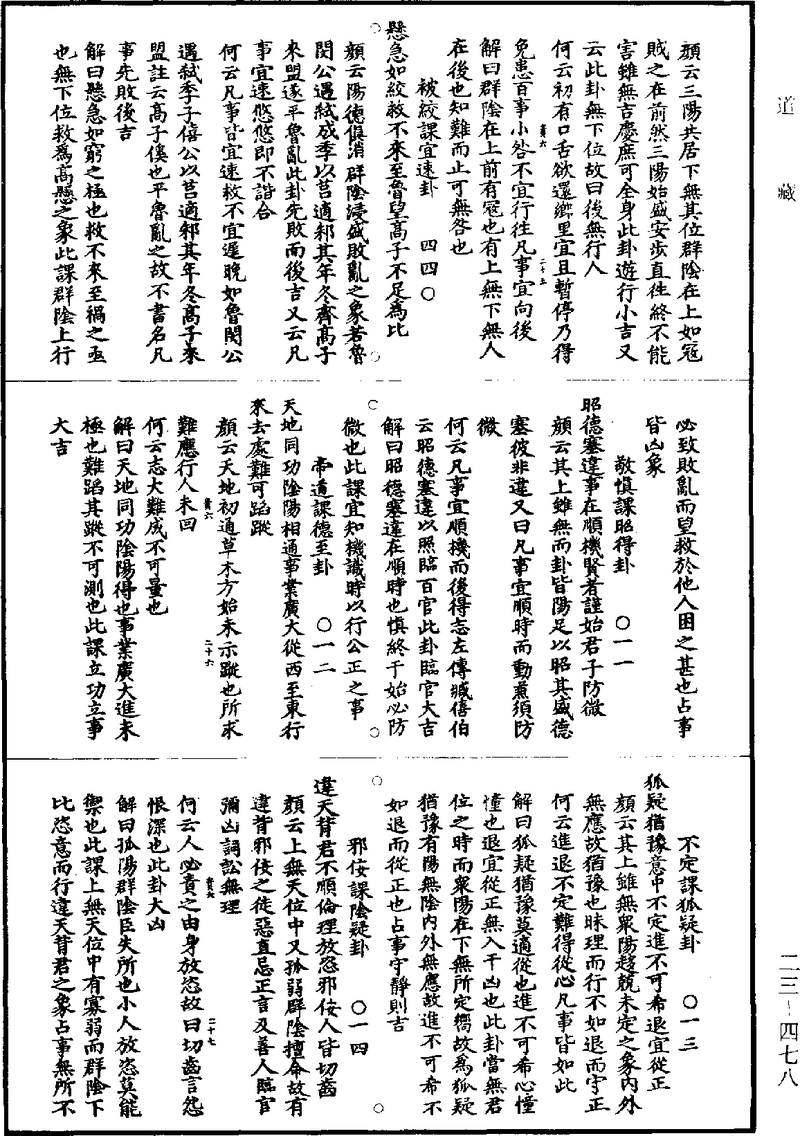 道藏
顏云三陽共居下無其位群陰在上如寇
賊之在前然三陽始盛安步直往終不能
害雖無吉慶庶可全身此卦遊行小吉又
云此卦無下位故曰後無行人
何云初有口舌欲還鄉里宜且暫停乃得
免患百事小咎不宜行往凡事宜向後
解曰群陰在上前有寇也有上無下無人
在後也知難而止可無咎也
被絞課宜速卦 四四〇
懸急如絞救不來至魯望高子不足為比
顏云陽德偩消群陰浸盛敗亂之象若魯
閔公遇弒成季以莒適邾其年冬齊高子
來盟遂平魯亂此卦先敗而後吉又云凡
事宜速悠悠即不諧合
何云凡事皆宜速救不宜遲晚如魯閔公
遇弒季子僖公以莒適邾其年冬高子來
盟註云高子傒也平魯亂之故不書名凡
事先敗後吉
解曰懸急如窮之極也救不來至禍之亟
也無下位救為高懸之象此課群陰上行
必致敗亂而望救於他人困之甚也占事
皆凶象
敬慎課昭得卦 〇一一
昭德塞違事在順機賢者謹始君子防微
顏云其上雖無而卦皆陽足以昭其盛德
塞彼非違又曰凡事宜順時而動兼須防
微
何云凡事宜順機而後得志左傳臧僖伯
云昭德塞違以照臨百官此卦臨官大吉
解曰昭德塞違在順時也慎終于始必防
微也此課宜知機識時以行公正之事
帝道課德至卦 〇一二
天地同功陰陽相通事業廣大從西至東行
來去處難可蹈蹤
顏云天地初通草木方始未示蹤也所求
難應行人未回
何云志大難成不可量也
解曰天地同功陰陽得也事業廣大進未
極也難蹈其蹤不可測也此課立功立事
大吉
不定課狐疑卦 〇一三
狐疑猶豫意中不定進不可希退宜從正
顏云其上雖無眾陽趍競未定之象內外
無應故猶豫也昧理而行不如退而守正
何云進退不定難得從心凡事皆如此
解曰狐疑猶豫莫適從也進不可希心憧
憧也退宜從正無入干凶也此卦當無君
位之時而眾陽在下無所定嚮故為狐疑
猶豫有陽無陰內外無應故進不可希不
如退而從正也占事守靜則吉
邪佞課陰疑卦 〇一四
違天背君不順倫理放恣邪佞人皆切齒
顏云上無天位中又孤弱群陰擅命故有
違背邪佞之徒惡直忌正言及善人臨官
彌凶詞訟無理
何云人必責之由身放恣故曰切齒言怨
恨深也此卦大凶
解曰孤陽群陰臣失所也小人放恣莫能
禦也此課上無天位中有寡弱而群陰下
比恣意而行違天背君之象占事無所不
二三—四七八